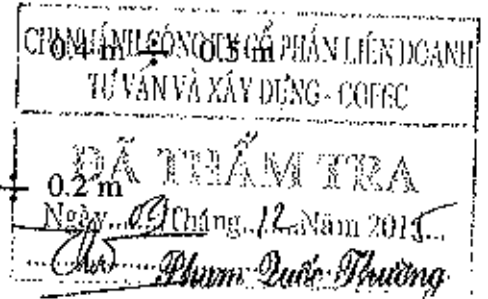 CHI NHÁNH CÔNG TY CỔ PHẦN LIÊN DOANH
0.4 m ÷ 0.5 m
TƯ VẤN VÀ XÂY DỰNG - COFEC
ĐÃ THẨM TRA
0.2 m
Ngày...09 Tháng..12..Năm 2015...
Phạm Quốc Thường